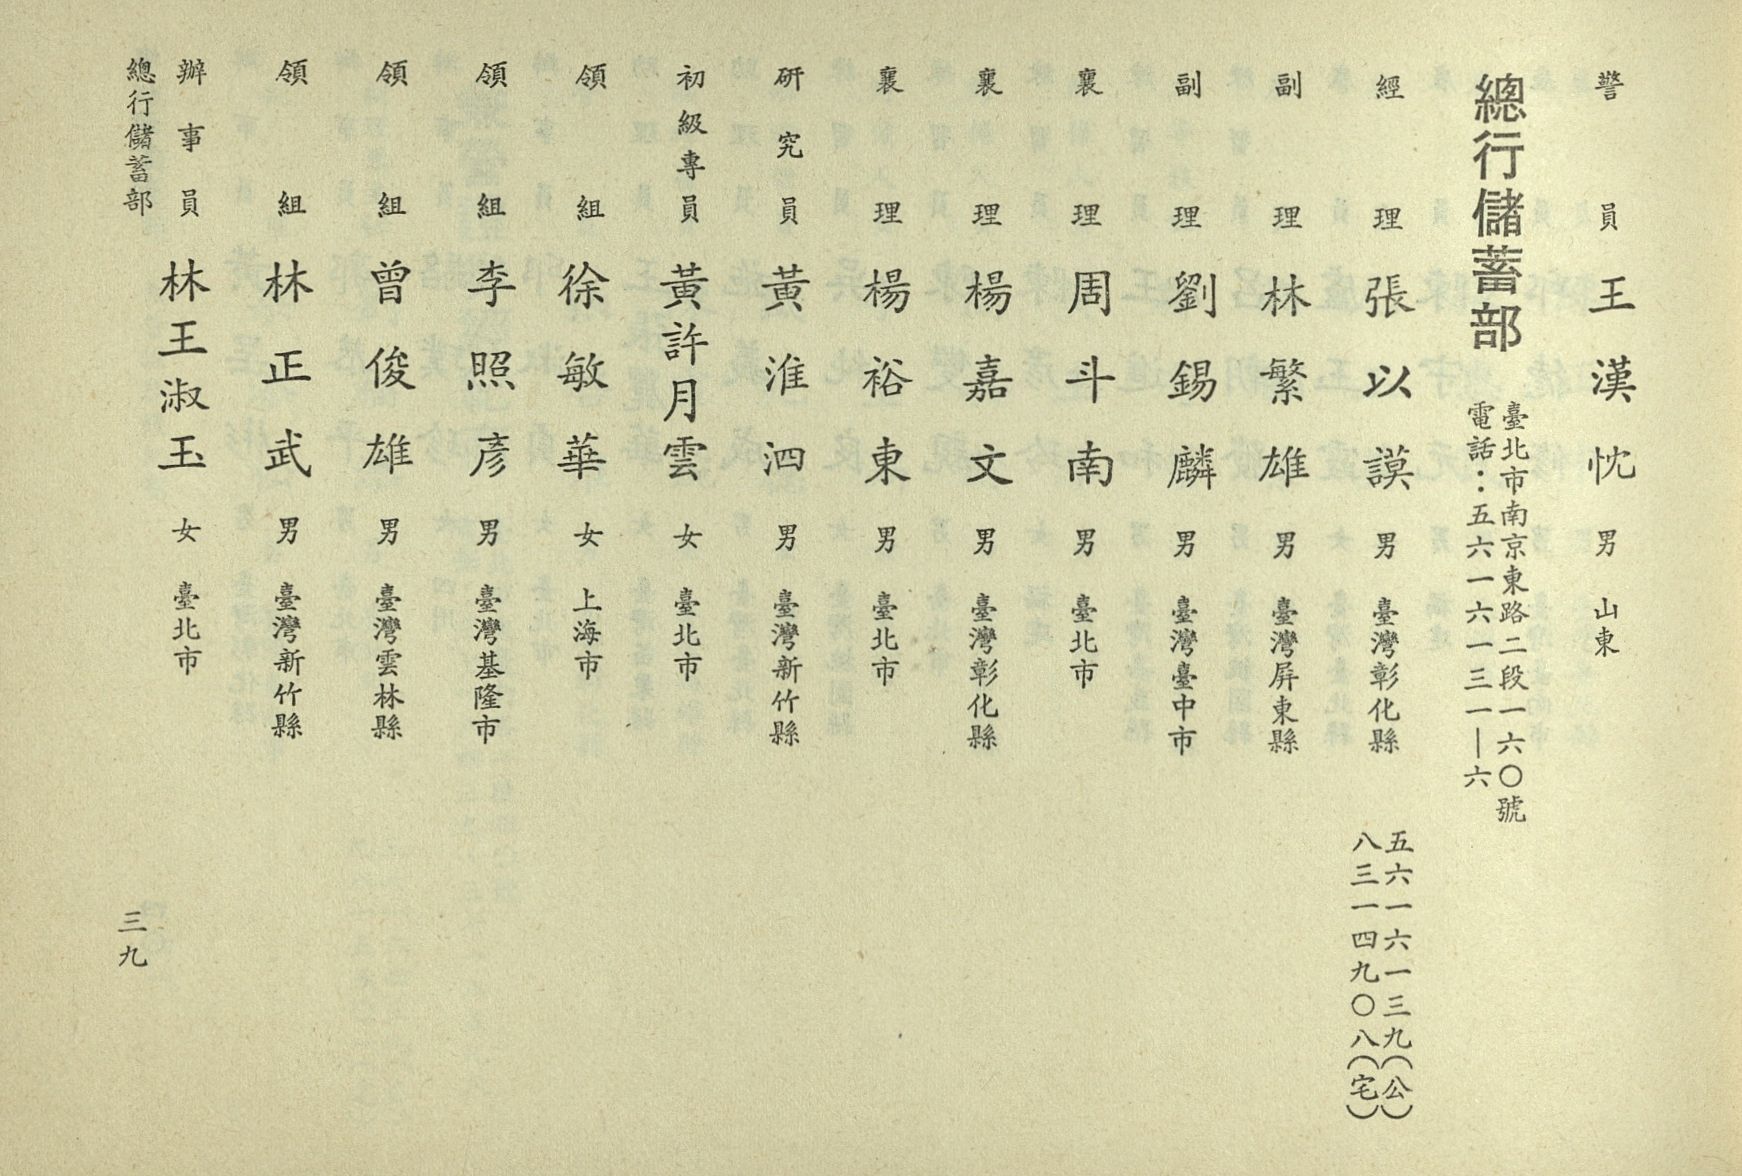 警員 王漢忱 男 山東
總行儲蓄部
臺北市南京東路二段一六〇號
電話：五六一六一三一—六
經理 張以謨 男 臺灣彰化縣
五六一六一三九（公）
八三一四九〇八（宅）
副理 林繁雄 男 臺灣屏東縣
副理 劉錫麟 男 臺灣臺中市
襄理 周斗南 男 臺北市
襄理 楊嘉文 男 臺灣彰化縣
襄理 楊裕東 男 臺北市
研究員 黃淮泗 男 臺灣新竹縣
初級專員 黃許月雲 女 臺北市
領組 徐敏華 女 上海市
領組 李照彥 男 臺灣基隆市
領組 曾俊雄 男 臺灣雲林縣
領組 林正武 男 臺灣新竹縣
辦事員 林王淑玉 女 臺北市
總行儲蓄部
三九